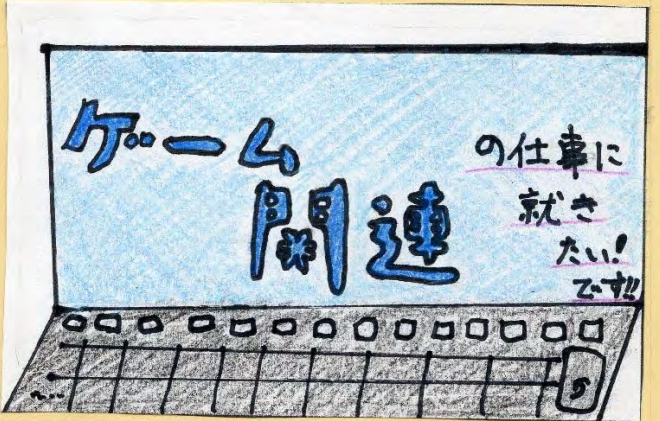 ゲーム
関連
の仕事に
就き
たい!
です!!